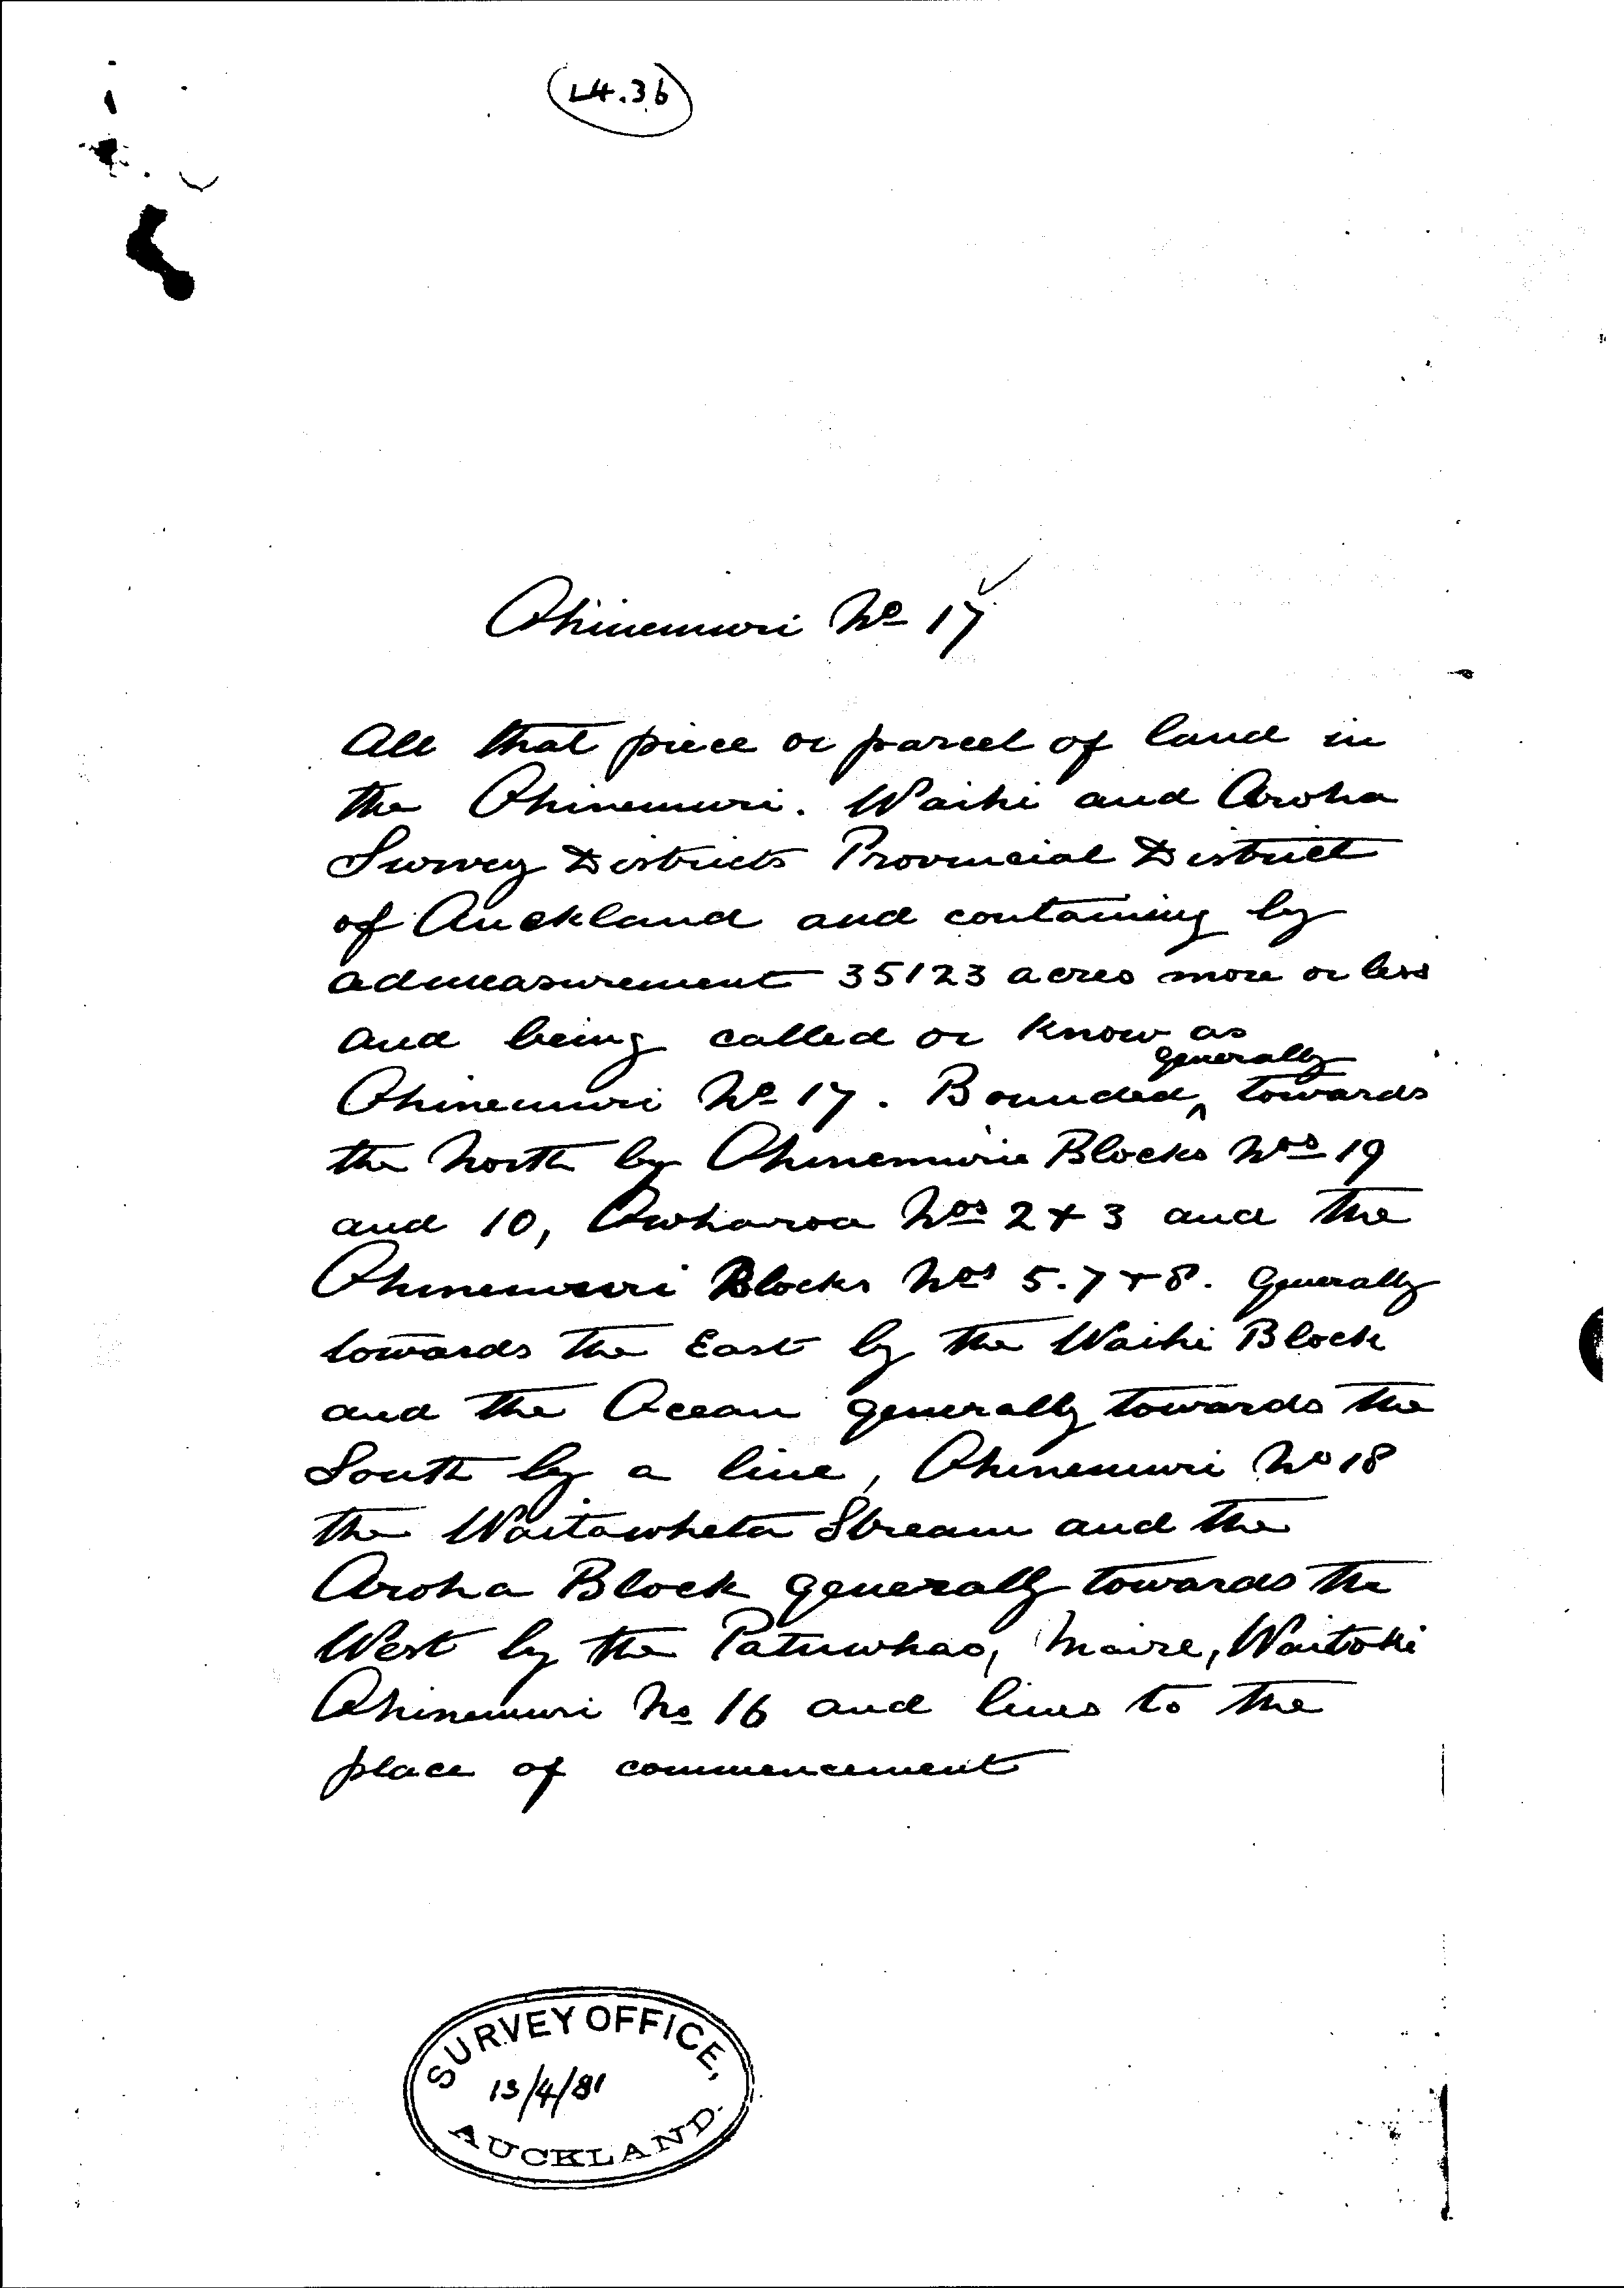 L4.36
Ohinemuri No 17
All that piece or parcel of land in
the Ohinemuri. Waihi and Aroha
Survey Districts Provincial District
of Auckland and containing by
admeasurement 35123 acres more or less
and being called or know as
generally
Ohinemuri No 17. Bounded ^ towards
the North by Ohinemuri Blocks Nos 19
and 10, Owharoa Nos 2 + 3 and the
Ohinemuri Blocks Nos 5.7 + 8. generally
towards the East by the Waihi Block
and the Ocean generally towards the
South by a line, Ohinemuri No 18
the Waitawheta Stream and the
Aroha Block generally towards the
West by the Patuwhao, Maire, Waitoki
Ohinemuri No 16 and lines to the
place of commencement
SURVEY OFFICE,
13/4/81
AUCKLAND.